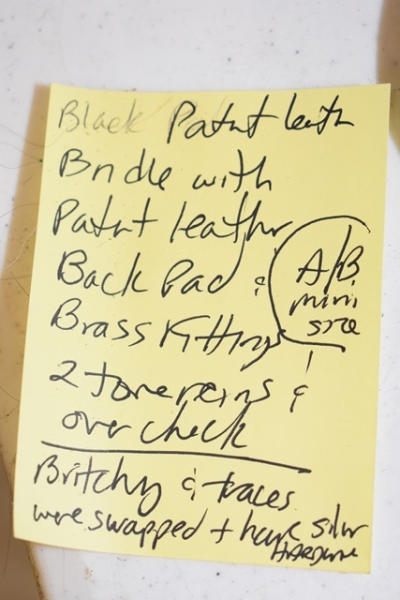 Black Patent leath
Bridle with
Patent leather
Back Pad &
A/B
mini
size
Brass Fittings
2 tone reins &
over check
Britchy & traces
were swapped + have silver
HARDware